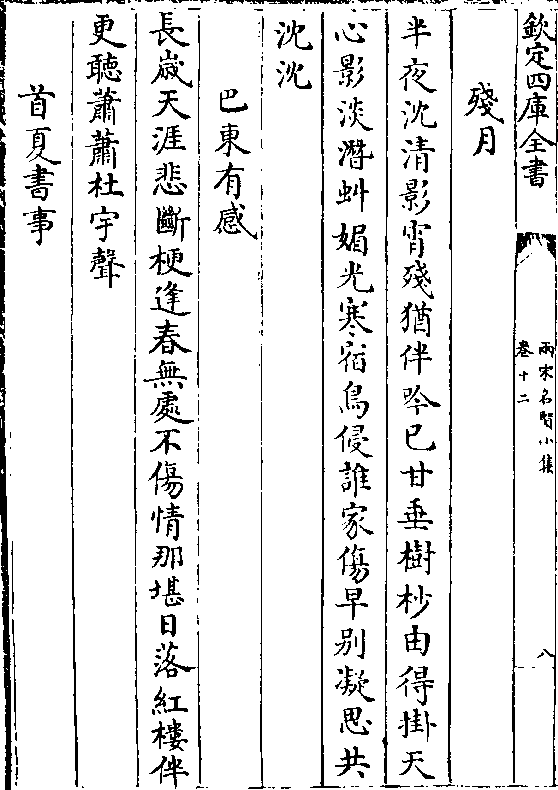 欽定四庫全書
兩宋名賢小集
卷十二
八
殘月
半夜沈清影宵殘猶伴吟已甘垂樹杪由得掛天
心影淡潛虯媚光寒宿鳥侵誰家傷早別凝思共
沈沈
巴東有感
長嵗天涯悲斷梗逢春無處不傷情那堪日落紅樓伴
更聽蕭蕭杜宇聲
首夏書事